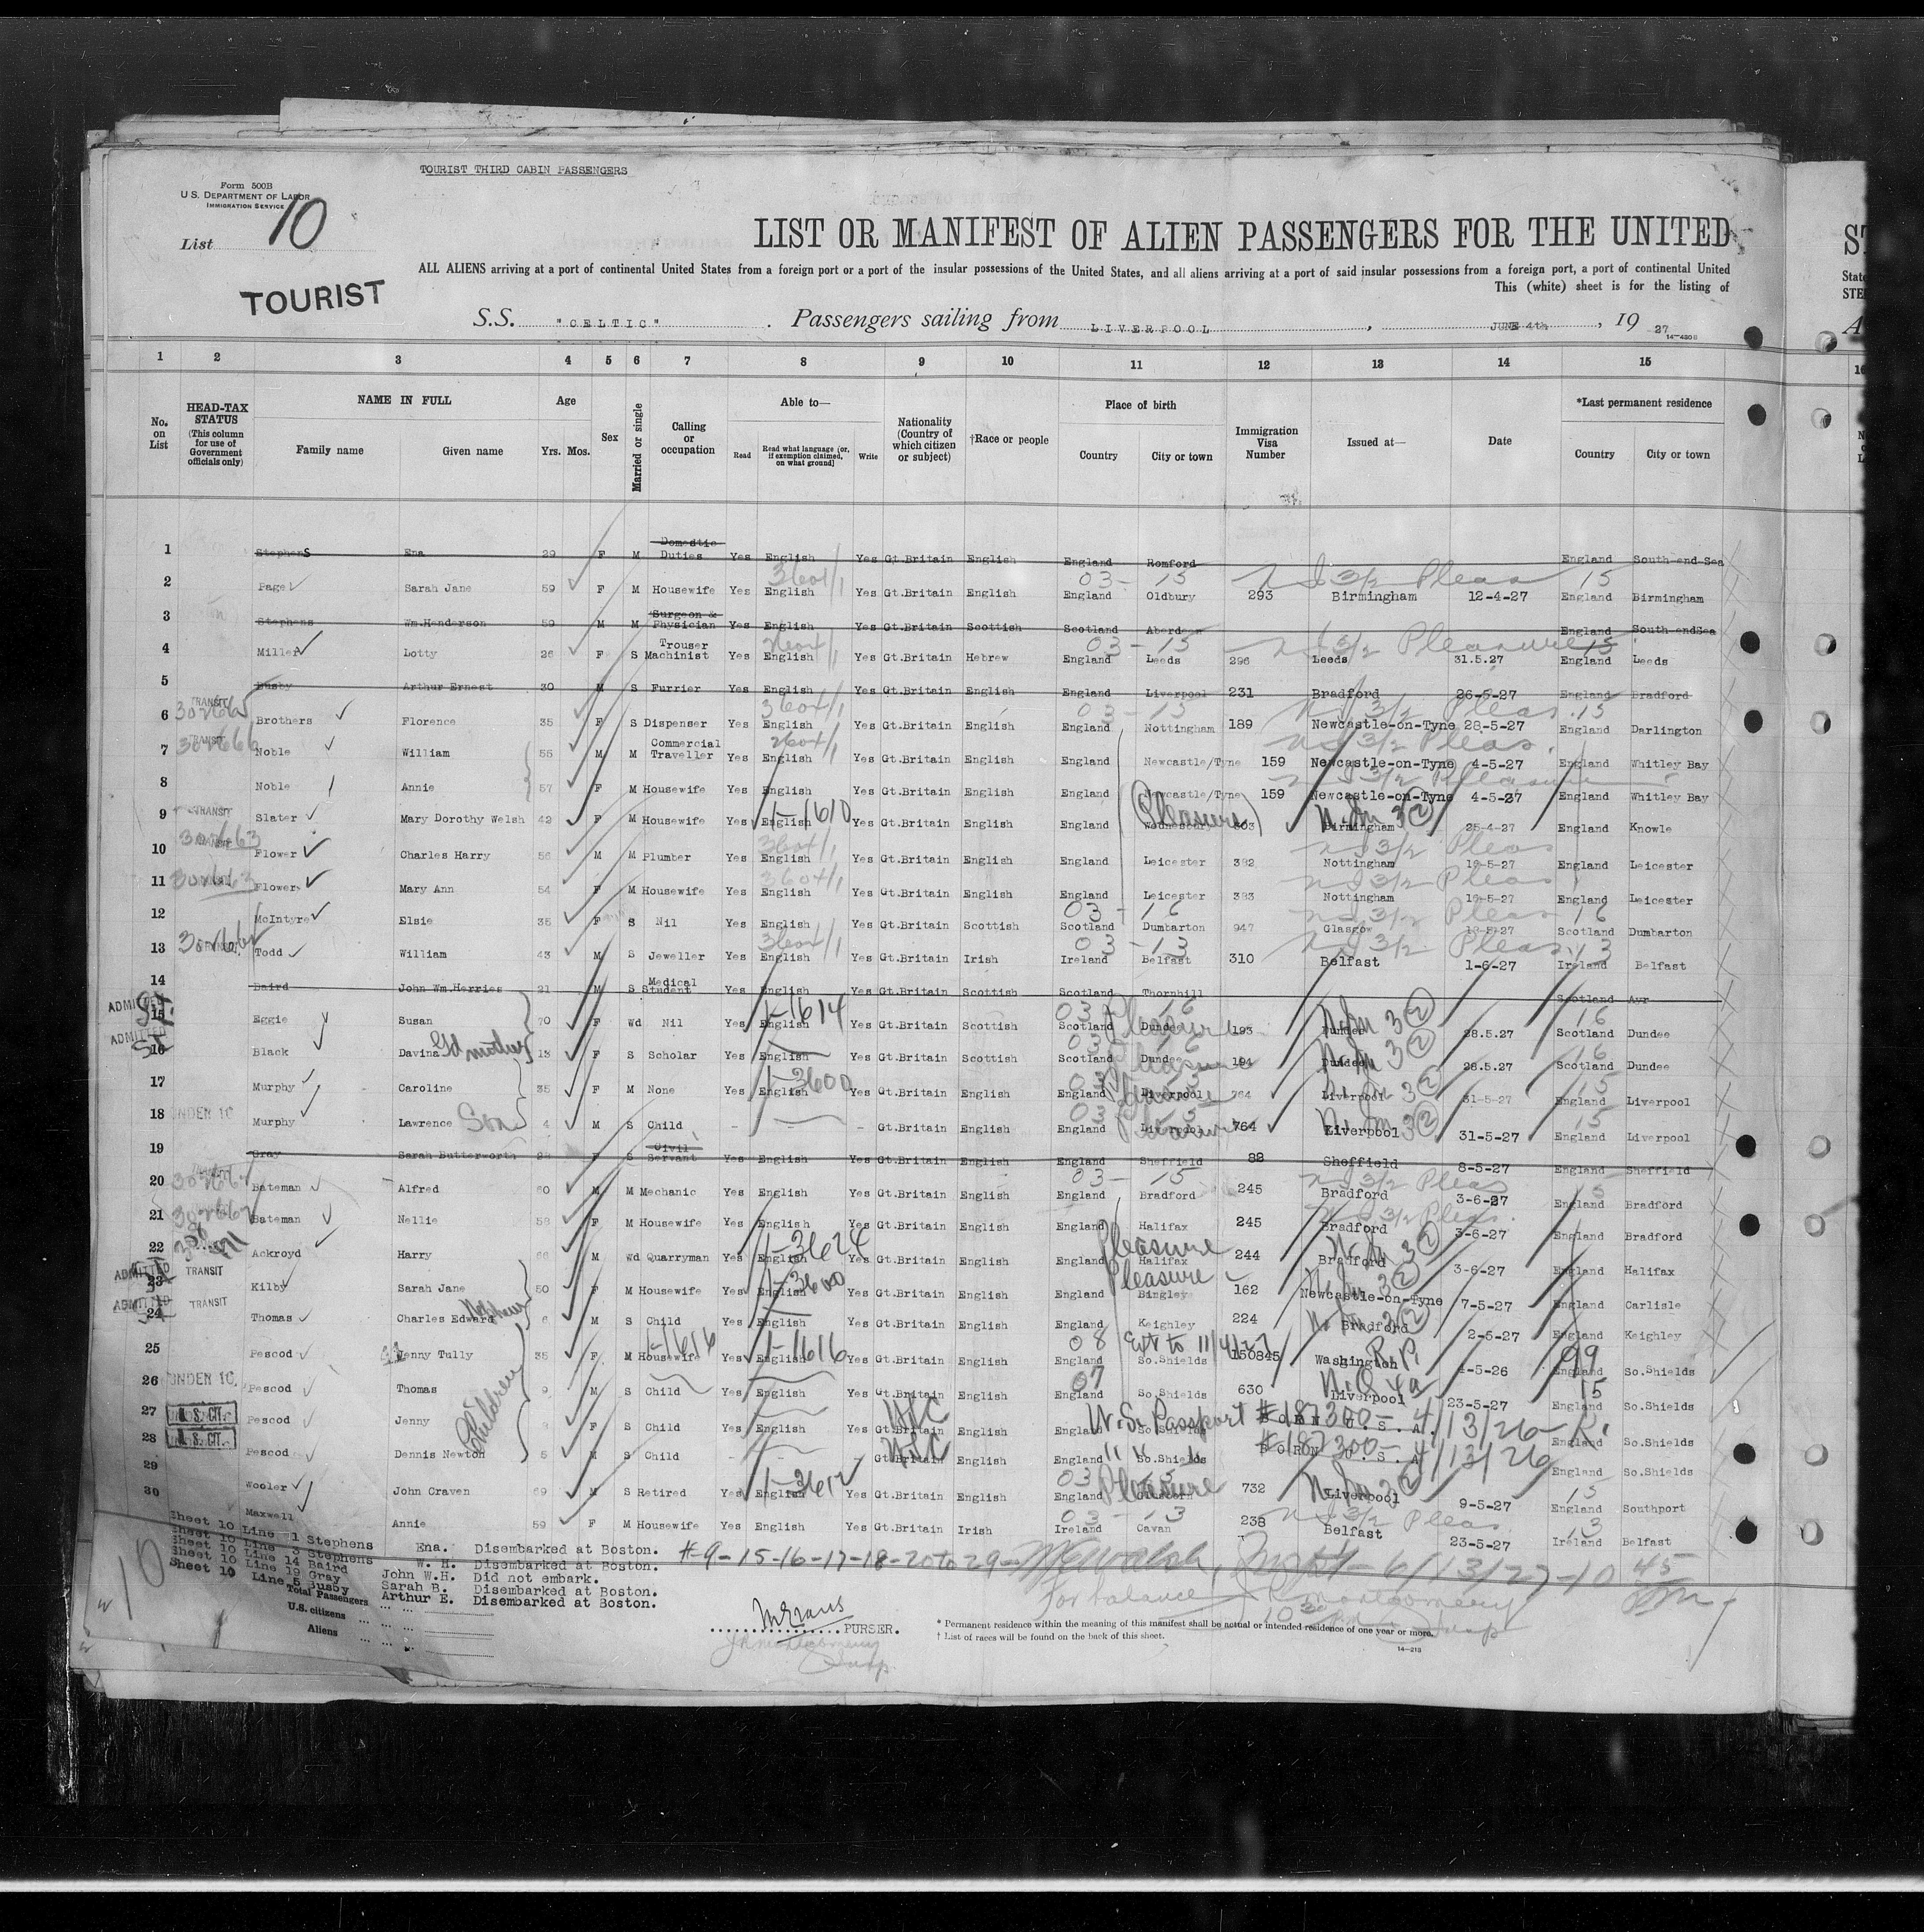 TOURIST THIRD CABIN PASSENGERS
Form 500B
U.S. DEPARTMENT OF LABOR
IMMIGRATION SERVICE
List 10
LIST OR MANIFEST OF ALIEN PASSENGERS FOR THE UNITED
ALL ALIENS arriving at a port of continental United States from a foreign port or a port of the insular possessions of the United States, and all aliens arriving at a port of said insular possessions from a foreign port, a port of continental United
This (white) sheet is for the listing of
TOURIST
S.S. "CELTIC" . Passengers sailing from LIVERPOOL , JUNE 4th , 19 27
14-4808
1 2 3 4 5 6 7 8 9 10 11 12 13 14 15
No. on List HEAD-TAX STATUS (This column for use of Government officials only) NAME IN FULL Family name Given name Age Yrs. Mos. Sex Married or single Calling or occupation Able to— Read Read what language [or, if exemption claimed, on what ground] Write Nationality (Country of which citizen or subject) †Race or people Place of birth Country City or town Immigration Visa Number Issued at— Date *Last permanent residence Country City or town
1 Stephens Ena 29 F M Domestic Duties Yes English Yes Gt.Britain English England Romford England South-end-Sea
2 Page Sarah Jane 59 F M Housewife Yes English Yes Gt.Britain English England Oldbury 293 Birmingham 12-4-27 England Birmingham
3 Stephens Wm.Henderson 59 M M Surgeon & Physician Yes English Yes Gt.Britain Scottish Scotland Aberdeen England South-endSea
4 Miller Lotty 26 F S Trouser Machinist Yes English Yes Gt.Britain Hebrew England Leeds 296 Leeds 31.5.27 England Leeds
5 Busby Arthur Ernest 30 M S Furrier Yes English Yes Gt.Britain English England Liverpool 231 Bradford 26-5-27 England Bradford
6 TRANSIT Brothers Florence 35 F S Dispenser Yes English Yes Gt.Britain English England Nottingham 189 Newcastle-on-Tyne 28-5-27 England Darlington
7 TRANSIT Noble William 55 M M Commercial Traveller Yes English Yes Gt.Britain English England Newcastle/Tyne 159 Newcastle-on-Tyne 4-5-27 England Whitley Bay
8 Noble Annie 57 F M Housewife Yes English Yes Gt.Britain English England Newcastle/Tyne 159 Newcastle-on-Tyne 4-5-27 England Whitley Bay
9 TRANSIT Slater Mary Dorothy Welsh 42 F M Housewife Yes English 1-1610 Yes Gt.Britain English England (Pleasure) Birmingham 25-4-27 England Knowle
10 Flower Charles Harry 56 M M Plumber Yes English Yes Gt.Britain English England Leicester 382 Nottingham 19-5-27 England Leicester
11 Flower Mary Ann 54 F M Housewife Yes English Yes Gt.Britain English England Leicester 383 Nottingham 19-5-27 England Leicester
12 McIntyre Elsie 35 F S Nil Yes English Yes Gt.Britain Scottish Scotland Dumbarton 947 Glasgow Scotland Dumbarton
13 Todd William 43 M S Jeweller Yes English Yes Gt.Britain Irish Ireland Belfast 310 Belfast 1-6-27 Ireland Belfast
14 Baird John Wm.Herries 21 M S Medical Student Yes English Yes Gt.Britain Scottish Scotland Thornhill Scotland Ayr
15 ADMITTED Eggie Susan 70 F Wd Nil Yes English 1-1614 Yes Gt.Britain Scottish Scotland Dundee Pleasure 193 Dundee 28.5.27 Scotland Dundee
16 ADMITTED Black Davina Gd mother 13 F S Scholar Yes English Yes Gt.Britain Scottish Scotland Dundee Pleasure 194 Dundee 28.5.27 Scotland Dundee
17 Murphy Caroline 35 F M None Yes English 1-3600 Yes Gt.Britain English England Liverpool Pleasure 764 Liverpool 31-5-27 England Liverpool
18 UNDER 16 Murphy Lawrence Son 4 M S Child - - - Gt.Britain English England Liverpool Pleasure 764 Liverpool 31-5-27 England Liverpool
19 Gray Sarah Butterworth F S Civil Servant Yes English Yes Gt.Britain English England Sheffield 88 Sheffield 8-5-27 England Sheffield
20 Bateman Alfred 60 M M Mechanic Yes English Yes Gt.Britain English England Bradford 245 Bradford 3-6-27 England Bradford
21 Bateman Nellie 58 F M Housewife Yes English Yes Gt.Britain English England Halifax 245 Bradford 3-6-27 England Bradford
22 Ackroyd Harry 66 M Wd Quarryman Yes English 1-3624 Yes Gt.Britain English England Halifax Pleasure 244 Bradford 3-6-27 England Halifax
23 ADMITTED TRANSIT Kilby Sarah Jane 50 F M Housewife Yes English 1-3600 Yes Gt.Britain English England Bingley Pleasure 162 Newcastle-on-Tyne 7-5-27 England Carlisle
24 ADMITTED TRANSIT Thomas Charles Edward Nephew 6 M S Child Yes English Yes Gt.Britain English England Keighley 224 Bradford 2-5-27 England Keighley
25 Pescod Jenny Tully 35 F M Housewife 1-1616 Yes English 1-1616 Yes Gt.Britain English England So.Shields Ext to 11/4/27 150845 Washington R.P. 4-5-26 England 99 So.Shields
26 UNDER 16 Pescod Thomas 9 M S Child Yes English Yes Gt.Britain English England So.Shields 630 Liverpool 23-5-27 England So.Shields
27 U.S. CIT. Pescod Jenny Children F S Child Yes English Yes Gt.Britain English England So.Shields U.S. Passport #187300- 4/13/26 England So.Shields
28 U.S. CIT. Pescod Dennis Newton 5 M S Child - - - Gt.Britain English England So.Shields #187300- 4/13/26 England So.Shields
29 Wooler John Craven 69 M S Retired Yes English 1-3612 Yes Gt.Britain English England Pleasure 732 Liverpool 9-5-27 England Southport
30 Maxwell Annie 59 F M Housewife Yes English Yes Gt.Britain Irish Ireland Cavan 238 Belfast 23-5-27 Ireland Belfast
Sheet 10 Line 1 Stephens Ena. Disembarked at Boston.
Sheet 10 Line 3 Stephens W. H. Disembarked at Boston.
Sheet 10 Line 14 Baird John W.H. Did not embark.
Sheet 10 Line 19 Gray Sarah B. Disembarked at Boston.
Sheet 10 Line 5 Busby Arthur E. Disembarked at Boston.
#-9-15-16-17-18-20 to 29- 6/13/27-10 45
For balance J R Montgomery
10
Total Passengers
U.S. citizens
Aliens
PURSER.
* Permanent residence within the meaning of this manifest shall be actual or intended residence of one year or more.
† List of races will be found on the back of this sheet.
14-213